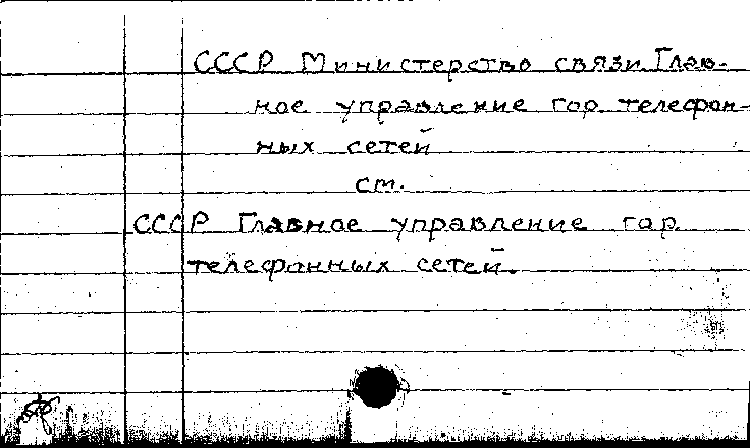 СССР Министерство связи. Глав-
ное управление гор. телефон-
ных сетей
см.
СССР Главное управление гор.
телефонных сетей.